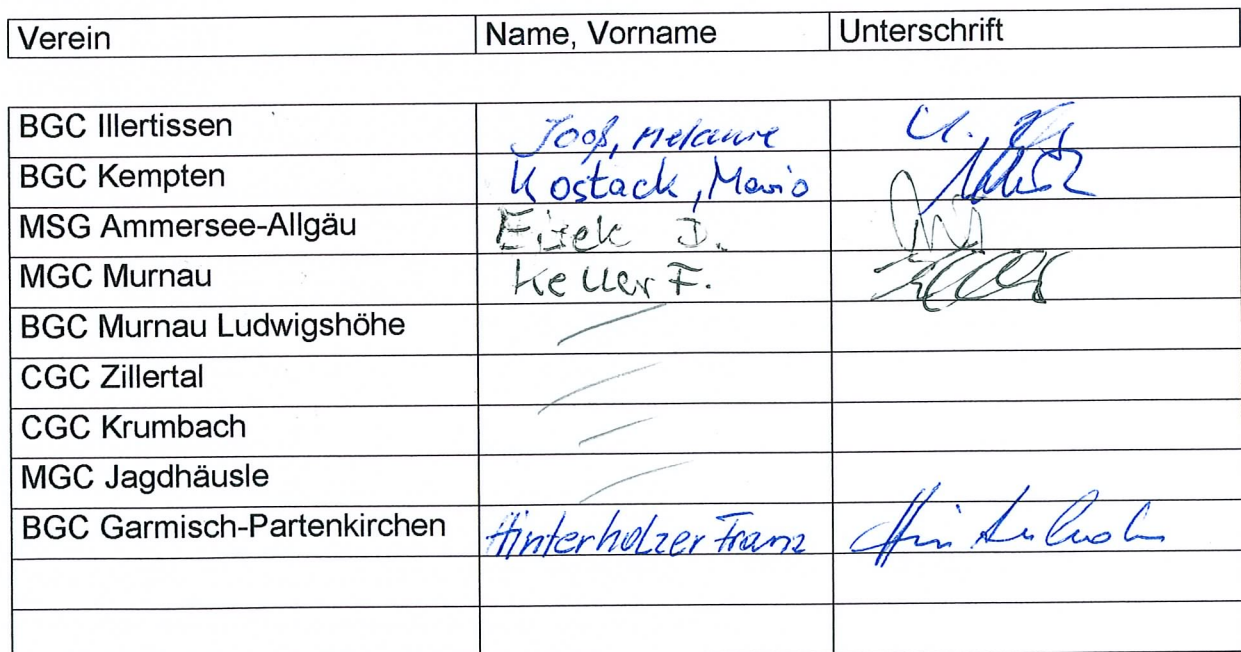 Verein Name, Vorname Unterschrift
BGC Illertissen Jooß, Melanie
BGC Kempten Kostack, Mario
MSG Ammersee-Allgäu D.
MGC Murnau Keller F.
BGC Murnau Ludwigshöhe
CGC Zillertal
CGC Krumbach
MGC Jagdhäusle
BGC Garmisch-Partenkirchen Hinterholzer Franz